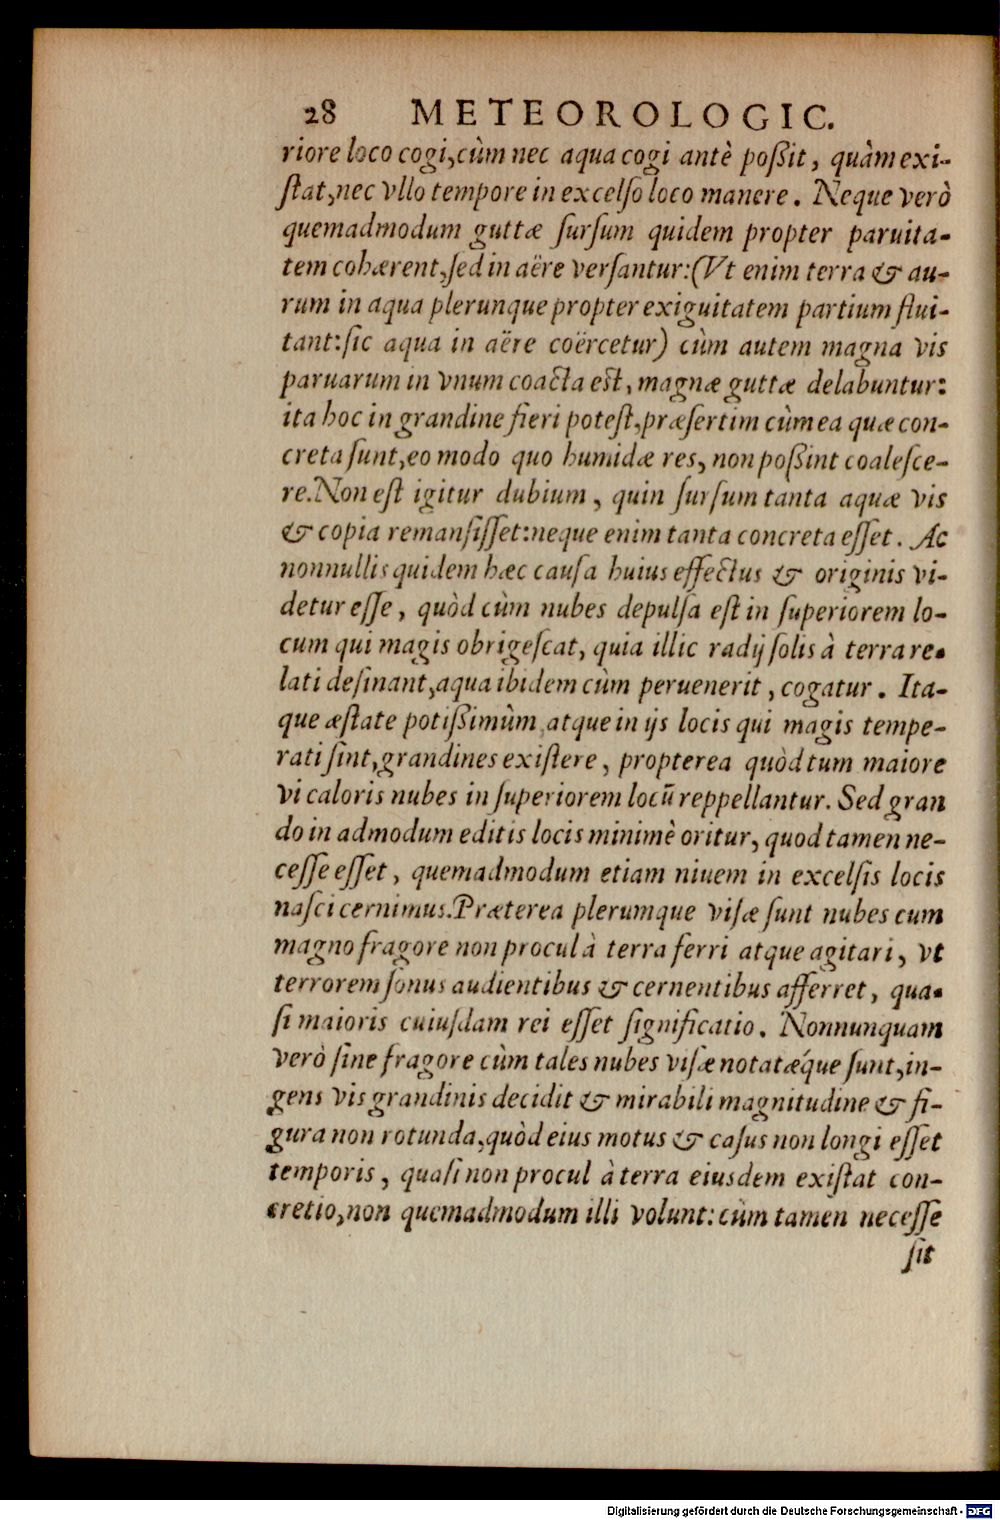 28 METEOROLOGIC.
riore loco cogi, cùm nec aqua cogi antè poßit, quàm exi-
ſtat, nec vllo tempore in excelſo loco manere. Neque verò
quemadmodum guttæ ſurſum quidem propter paruita-
tem cohærent, ſed in aëre verſantur: (Vt enim terra & au-
rum in aqua plerunque propter exiguitatem partium flui-
tant: ſic aqua in aëre coërcetur) cùm autem magna vis
paruarum in vnum coacta est, magnæ guttæ delabuntur:
ita hoc in grandine fieri poteſt, præſertim cùm ea quæ con-
creta ſunt, eo modo quo humidæ res, non poßint coaleſce-
re. Non eſt igitur dubium, quin ſurſum tanta aquæ vis
& copia remanſiſſet: neque enim tanta concreta eſſet. Ac
nonnullis quidem hæc cauſa huius effectus & originis vi-
detur eſſe, quòd cùm nubes depulſa eſt in ſuperiorem lo-
cum qui magis obrigeſcat, quia illic radij ſolis à terra re-
lati deſinant, aqua ibidem cùm peruenerit, cogatur. Ita-
que æſtate potißimùm atque in ijs locis qui magis tempe-
rati ſint, grandines exiſtere, propterea quòd tum maiore
vi caloris nubes in ſuperiorem locū reppellantur. Sed gran
do in admodum editis locis minimè oritur, quod tamen ne-
ceſſe eſſet, quemadmodum etiam niuem in excelſis locis
naſci cernimus. Præterea plerumque viſæ ſunt nubes cum
magno fragore non procul à terra ferri atque agitari, vt
terrorem ſonus audientibus & cernentibus afferret, qua-
ſi maioris cuiuſdam rei eſſet ſignificatio. Nonnunquam
verò ſine fragore cùm tales nubes viſæ notatǽque ſunt, in-
gens vis grandinis decidit & mirabili magnitudine & fi-
gura non rotunda, quòd eius motus & caſus non longi eſſet
temporis, quaſi non procul à terra eiusdem exiſtat con-
cretio, non quemadmodum illi volunt: cùm tamen neceſſe
ſit
Digitalisierung gefördert durch die Deutsche Forschungsgemeinschaft - DFG